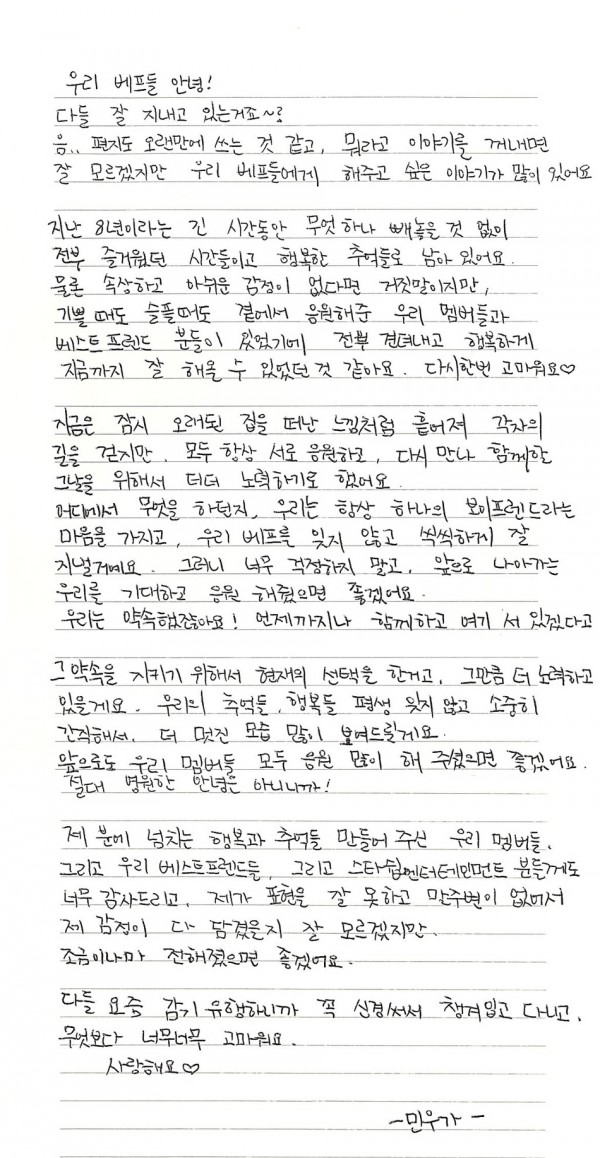 우리 베프들 안녕!
다들 잘 지내고 있는거죠~?
음.. 편지도 오랜만에 쓰는 것 같고, 뭐라고 이야기를 꺼내면
잘 모르겠지만 우리 베프들에게 해주고 싶은 이야기가 많이 있어요
지난 8년이라는 긴 시간동안 무엇 하나 빼놓을 것 없이
전부 즐거웠던 시간들이고 행복한 추억들로 남아 있어요.
물론 속상하고 아쉬운 감정이 없다면 거짓말이지만,
기쁠 때도 슬플때도 곁에서 응원해준 우리 멤버들과
베스트프렌드 분들이 있었기에 전부 견뎌내고 행복하게
지금까지 잘 해올 수 있었던 것 같아요. 다시한번 고마워요♡
지금은 잠시 오래된 집을 떠난 느낌처럼 흩어져 각자의
길을 걷지만, 모두 항상 서로 응원하고, 다시 만나 함께할
그날을 위해서 더더 노력하기로 했어요.
어디에서 무엇을 하던지, 우리는 항상 하나의 보이프렌드라는
마음을 가지고, 우리 베프를 잊지 않고 씩씩하게 잘
지낼게예요. 그러니 너무 걱정하지 말고, 앞으로 나아가는
우리를 기대하고 응원 해줬으면 좋겠어요.
우리는 약속했잖아요! 언제까지나 함께하고 여기 서 있겠다고
그 약속을 지키기 위해서 현재의 선택을 한거고, 그만큼 더 노력하고
있을게요. 우리의 추억들, 행복들 평생 잊지 않고 소중히
간직해서. 더 멋진 모습 많이 보여드릴게요.
앞으로도 우리 멤버들 모두 응원 많이 해 주셨으면 좋겠어요.
절대 영원한 안녕은 아니니까!
제 분에 넘치는 행복과 추억들 만들어 주신 우리 멤버들.
그리고 우리 베스트프렌드들, 그리고 스타쉽엔터테인먼트 분들께도
너무 감사드리고, 제가 표현을 잘 못하고 말주변이 없어서
제 감정이 다 담겼을지 잘 모르겠지만.
조금이나마 전해졌으면 좋겠어요.
다들 요즘 감기 유행하니까 꼭 신경써서 챙겨입고 다니고,
무엇보다 너무너무 고마워요.
사랑해요♡
-민우가-